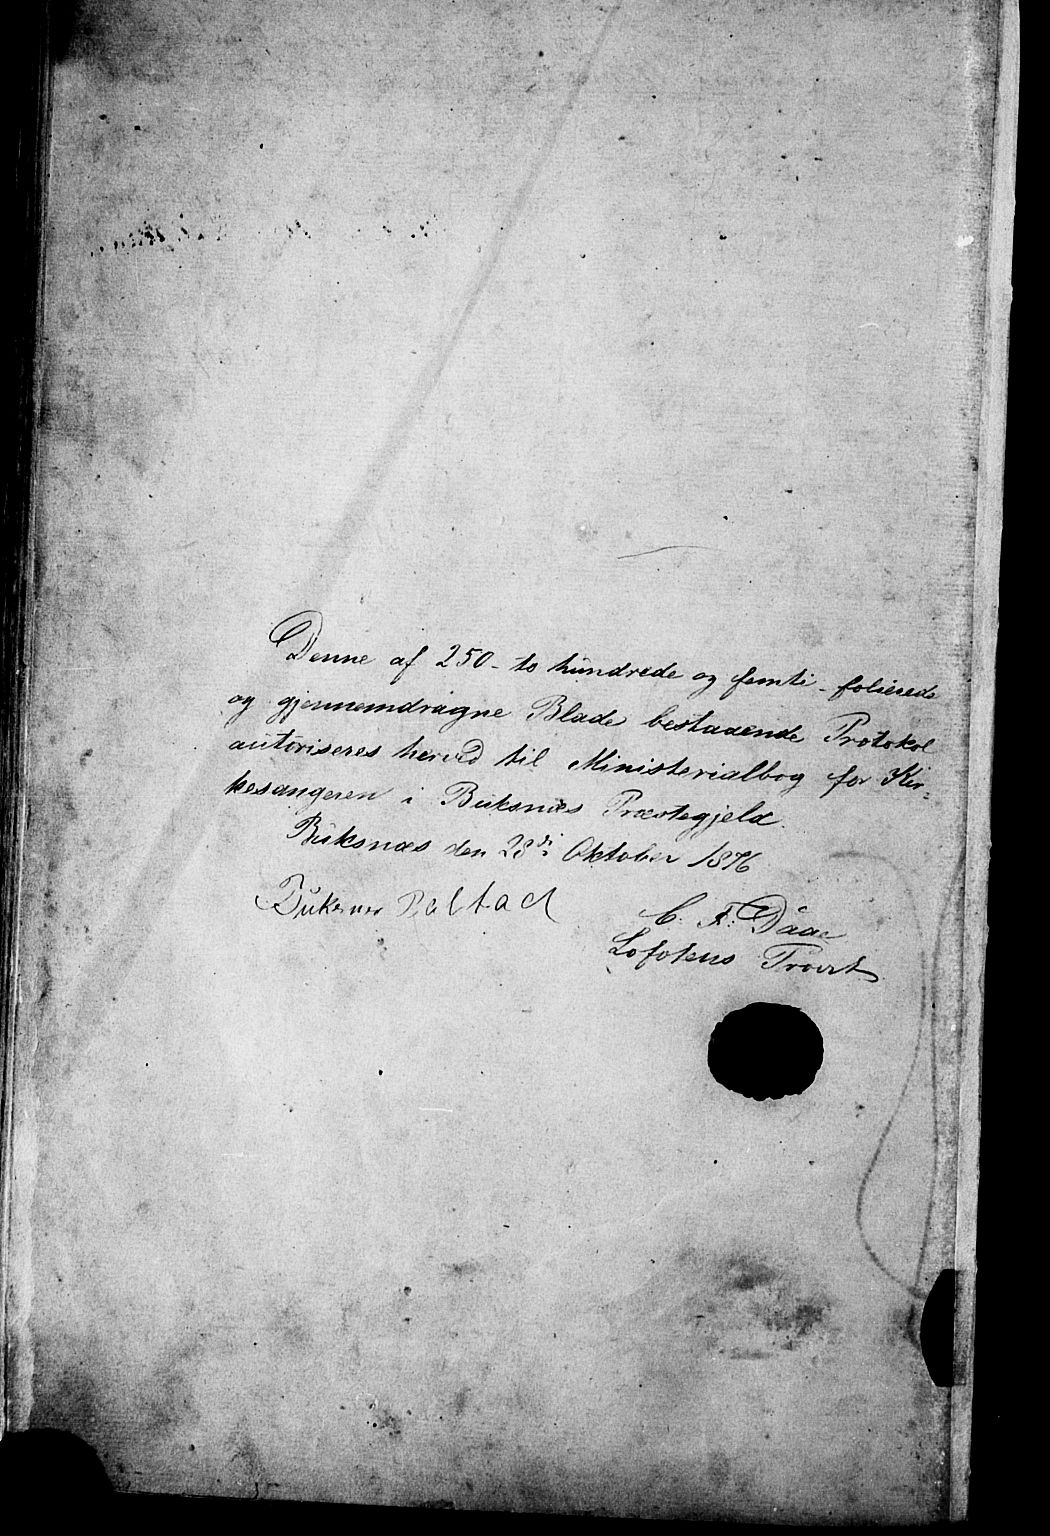 Denne af 250 - to hundrede og femti - folierede
og gjennemdragne Blade bestaaende Protokol
autoriseres herved til Ministerialbog for Kir-
kesangeren i Buksnæs Præstegjeld.
Buksnæs den 28de Oktober 1876
Buksnes
C. F. Daae
Lofotens Provst